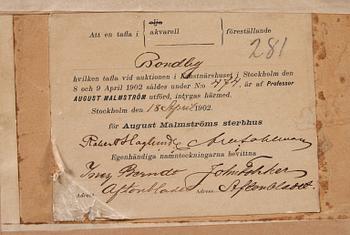 olja
Att en tafla i akvarell föreställande
281
Bondby
hvilken tafla vid auktionen i Konstnärshuset i Stockholm den
8 och 9 April 1902 såldes under No 474, är af Professor
AUGUST MALMSTRÖM utförd, intygas härmed.
Stockholm den 18 April 1902.
för August Malmströms sterbhus
Robert Haglund
Egenhändiga namnteckningarna bevittna
Berndt John
Aftonbladet Adress Aftonbladet
Adress